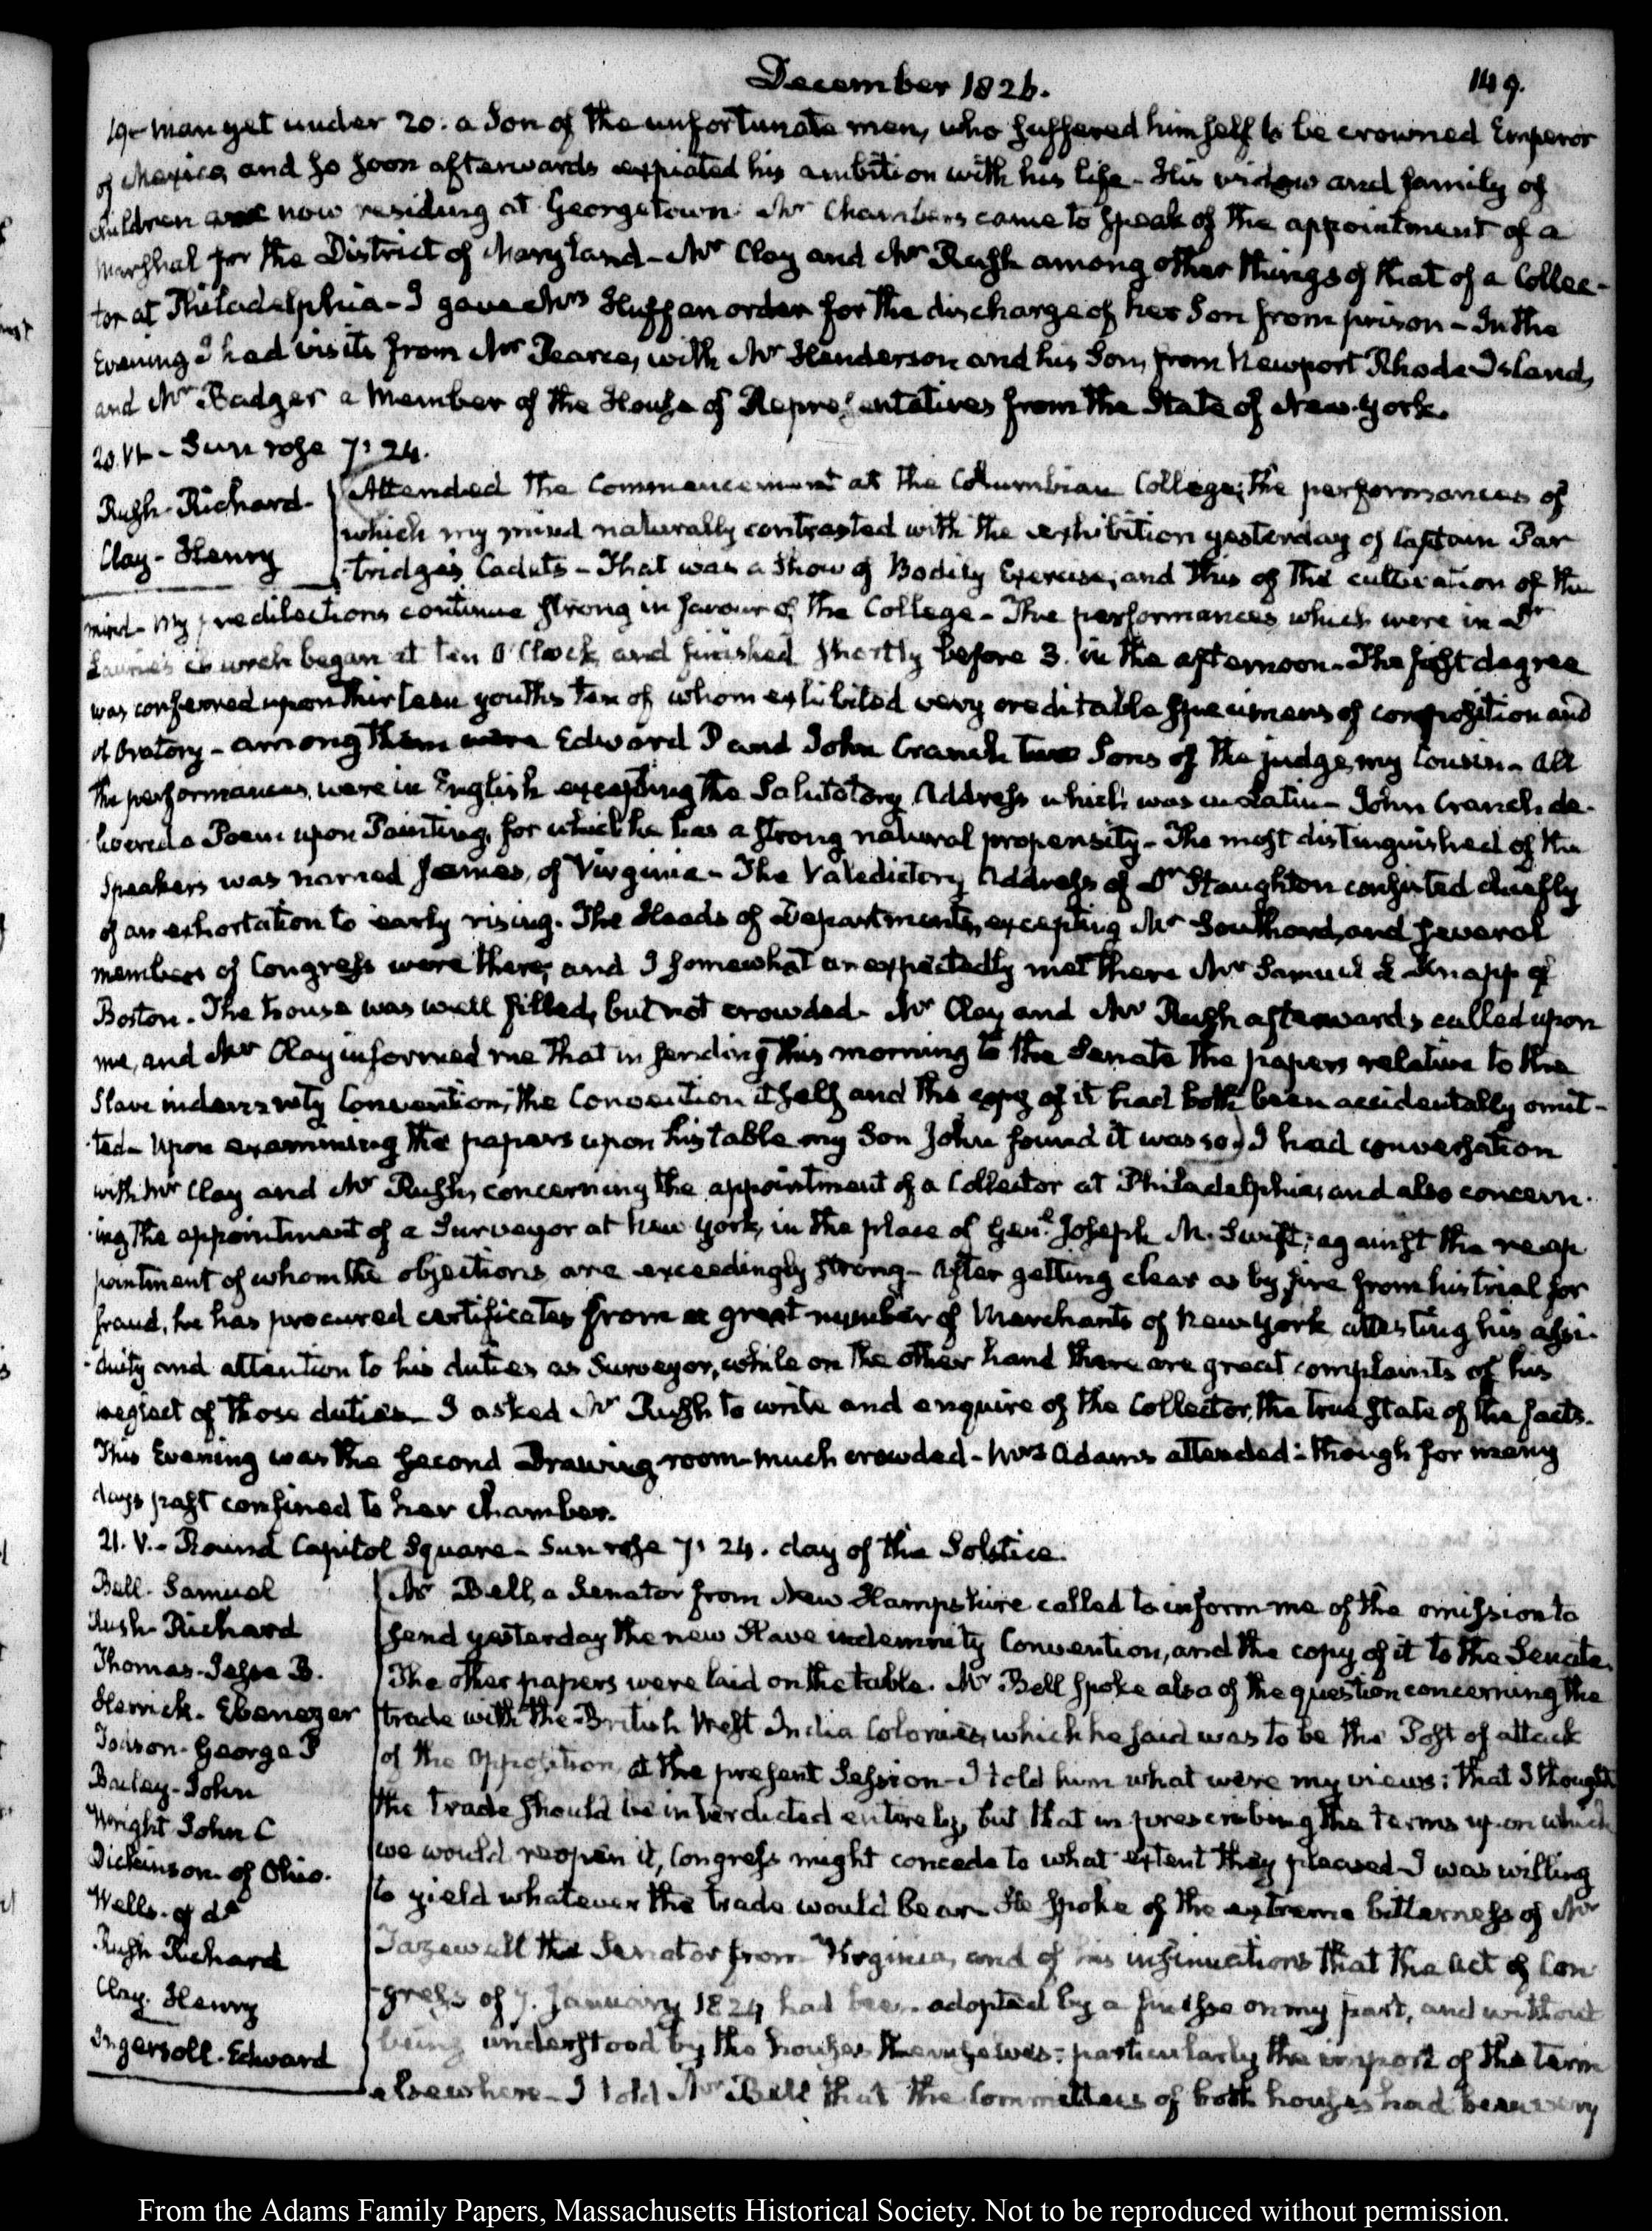 December 1826. 149.
19. man yet under 20. a Son of the unfortunate man, who suffered himself to be crowned Emperor
of Mexico, and so soon afterwards expiated his ambition with his life. His widow and family of
children are now residing at Georgetown. Mr Chambers came to speak of the appointment of a
Marshal for the District of Maryland– Mr Clay and Mr Rush among other things of that of a Collec-
tor at Philadelphia– I gave Mrs Huff an order for the discharge of her Son from prison– In the
Evening I had visits from Mr Pearce, with Mr Henderson and his Son, from Newport Rhode-Island,
and Mr Badger a Member of the House of Representatives from the State of New-York.
20. IV– Sun rose 7: 24.
Rush– Richard–
Clay– Henry
Attended the Commencement at the Columbian College; the performances of
which my mind naturally contrasted with the exhibition yesterday of Captain Par
tridge's Cadets– That was a Show of Bodily Exercise; and this of the cultivation of the
mind– My predilections continue strong in favour of the College– The performances which were in Dr
Laurie's church began at ten O'Clock, and finished shortly before 3. in the afternoon– The first degree
was conferred upon thirteen youths ten of whom exhibited very creditable specimens of composition and
of Oratory– among them were Edward P and John Cranch two Sons of the judge, my Cousin– All
the performances, were in English excepting the Salutatory Address which was in Latin– John Cranch de-
livered a Poem upon Painting, for which he has a strong natural propensity– The most distinguished of the
Speakers was named James, of Virginia– The Valedictory Address of Dr Staughton consisted chiefly
of an exhortation to early rising. The Heads of Departments, excepting Mr Southard, and several
members of Congress were there; and I somewhat unexpectedly met there Mr Samuel L Knapp of
Boston. The house was well filled, but not crowded– Mr Clay and Mr Rush afterwards called upon
me, and Mr Clay informed me that in sending this morning to the Senate the papers relative to the
Slave indemnity Convention, the Convention itself and the copy of it had both been accidentally omit-
ted– Upon examining the papers upon his table my Son John found it was so.) I had conversation
with Mr Clay and Mr Rush, concerning the appointment of a Collector at Philadelphia; and also concern-
ing the appointment of a Surveyor at New York, in the place of Genl. Joseph M. Swift; against the reap
pointment of whom the objections are exceedingly strong– After getting clear as by fire from his trial for
fraud, he has procured certificates from a great number of Merchants of New York attesting his assi-
duity and attention to his duties as Surveyor, while on the other hand there are great complaints of his
neglect of those duties– I asked Mr Rush to write and enquire of the Collector, the true state of the facts.
This Evening was the second Drawing room– much crowded– Mrs Adams attended: though for many
days past confined to her chamber.
21. V.– Round Capitol Square– Sun rose 7: 24. day of the Solstice.
Bell– Samuel
Rush– Richard
Thomas– Jesse B.
Herrick– Ebenezer
George P
Bailey– John
Wright John C
Dickinson– of Ohio.
Wells– of do
Rush Richard
Clay– Henry
Ingersoll– Edward
Mr Bell, a Senator from New Hampshire called to inform me of the omission to
send yesterday the new Slave indemnity Convention, and the copy of it to the Senate.
The other papers were laid on the table. Mr Bell spoke also of the question concerning the
trade with the British West India Colonies, which he said was to be the Post of attack
of the Opposition, at the present Session– I told him what were my views: that I thought
the trade should be interdicted entirely, but that in prescribing the terms upon which
we would reopen it, Congress might concede to what extent they pleased– I was willing
to yield whatever the trade would bear– He spoke of the extreme bitterness of Mr
Tazewell the Senator from Virginia, and of his insinuations that the act of Con
gress of January 1824 had been adopted by a finesse on my part, and without
being understood by the houses themselves: particularly the import of the term
elsewhere– I told Mr Bell that the Committees of both houses had been very
From the Adams Family Papers, Massachusetts Historical Society. Not to be reproduced without permission.